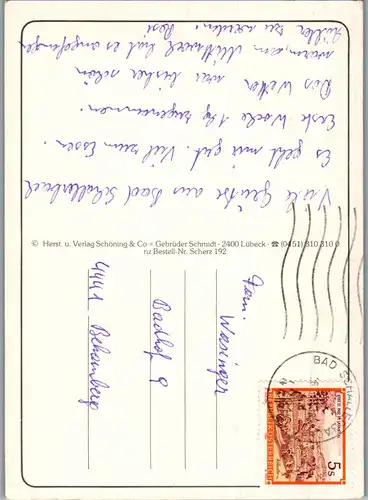 Viele Grüße aus Bad Schallerbach
Es geht mir gut. Viel zum Essen.
Erste Woche 1 kg zugenommen.
Das Wetter war bisher schön
warm, am Mittwoch hat es angefangen
kühler zu werden. Rosi
© Herst. u. Verlag Schöning & Co + Gebrüder Schmidt · 2400 Lübeck · ☎ (0451) 310 310 0
nz Bestell-Nr. Scherz 192
Fam.
Wasinger
Badhof 9
4441 Behamberg
BAD SCHALLERBA
5s